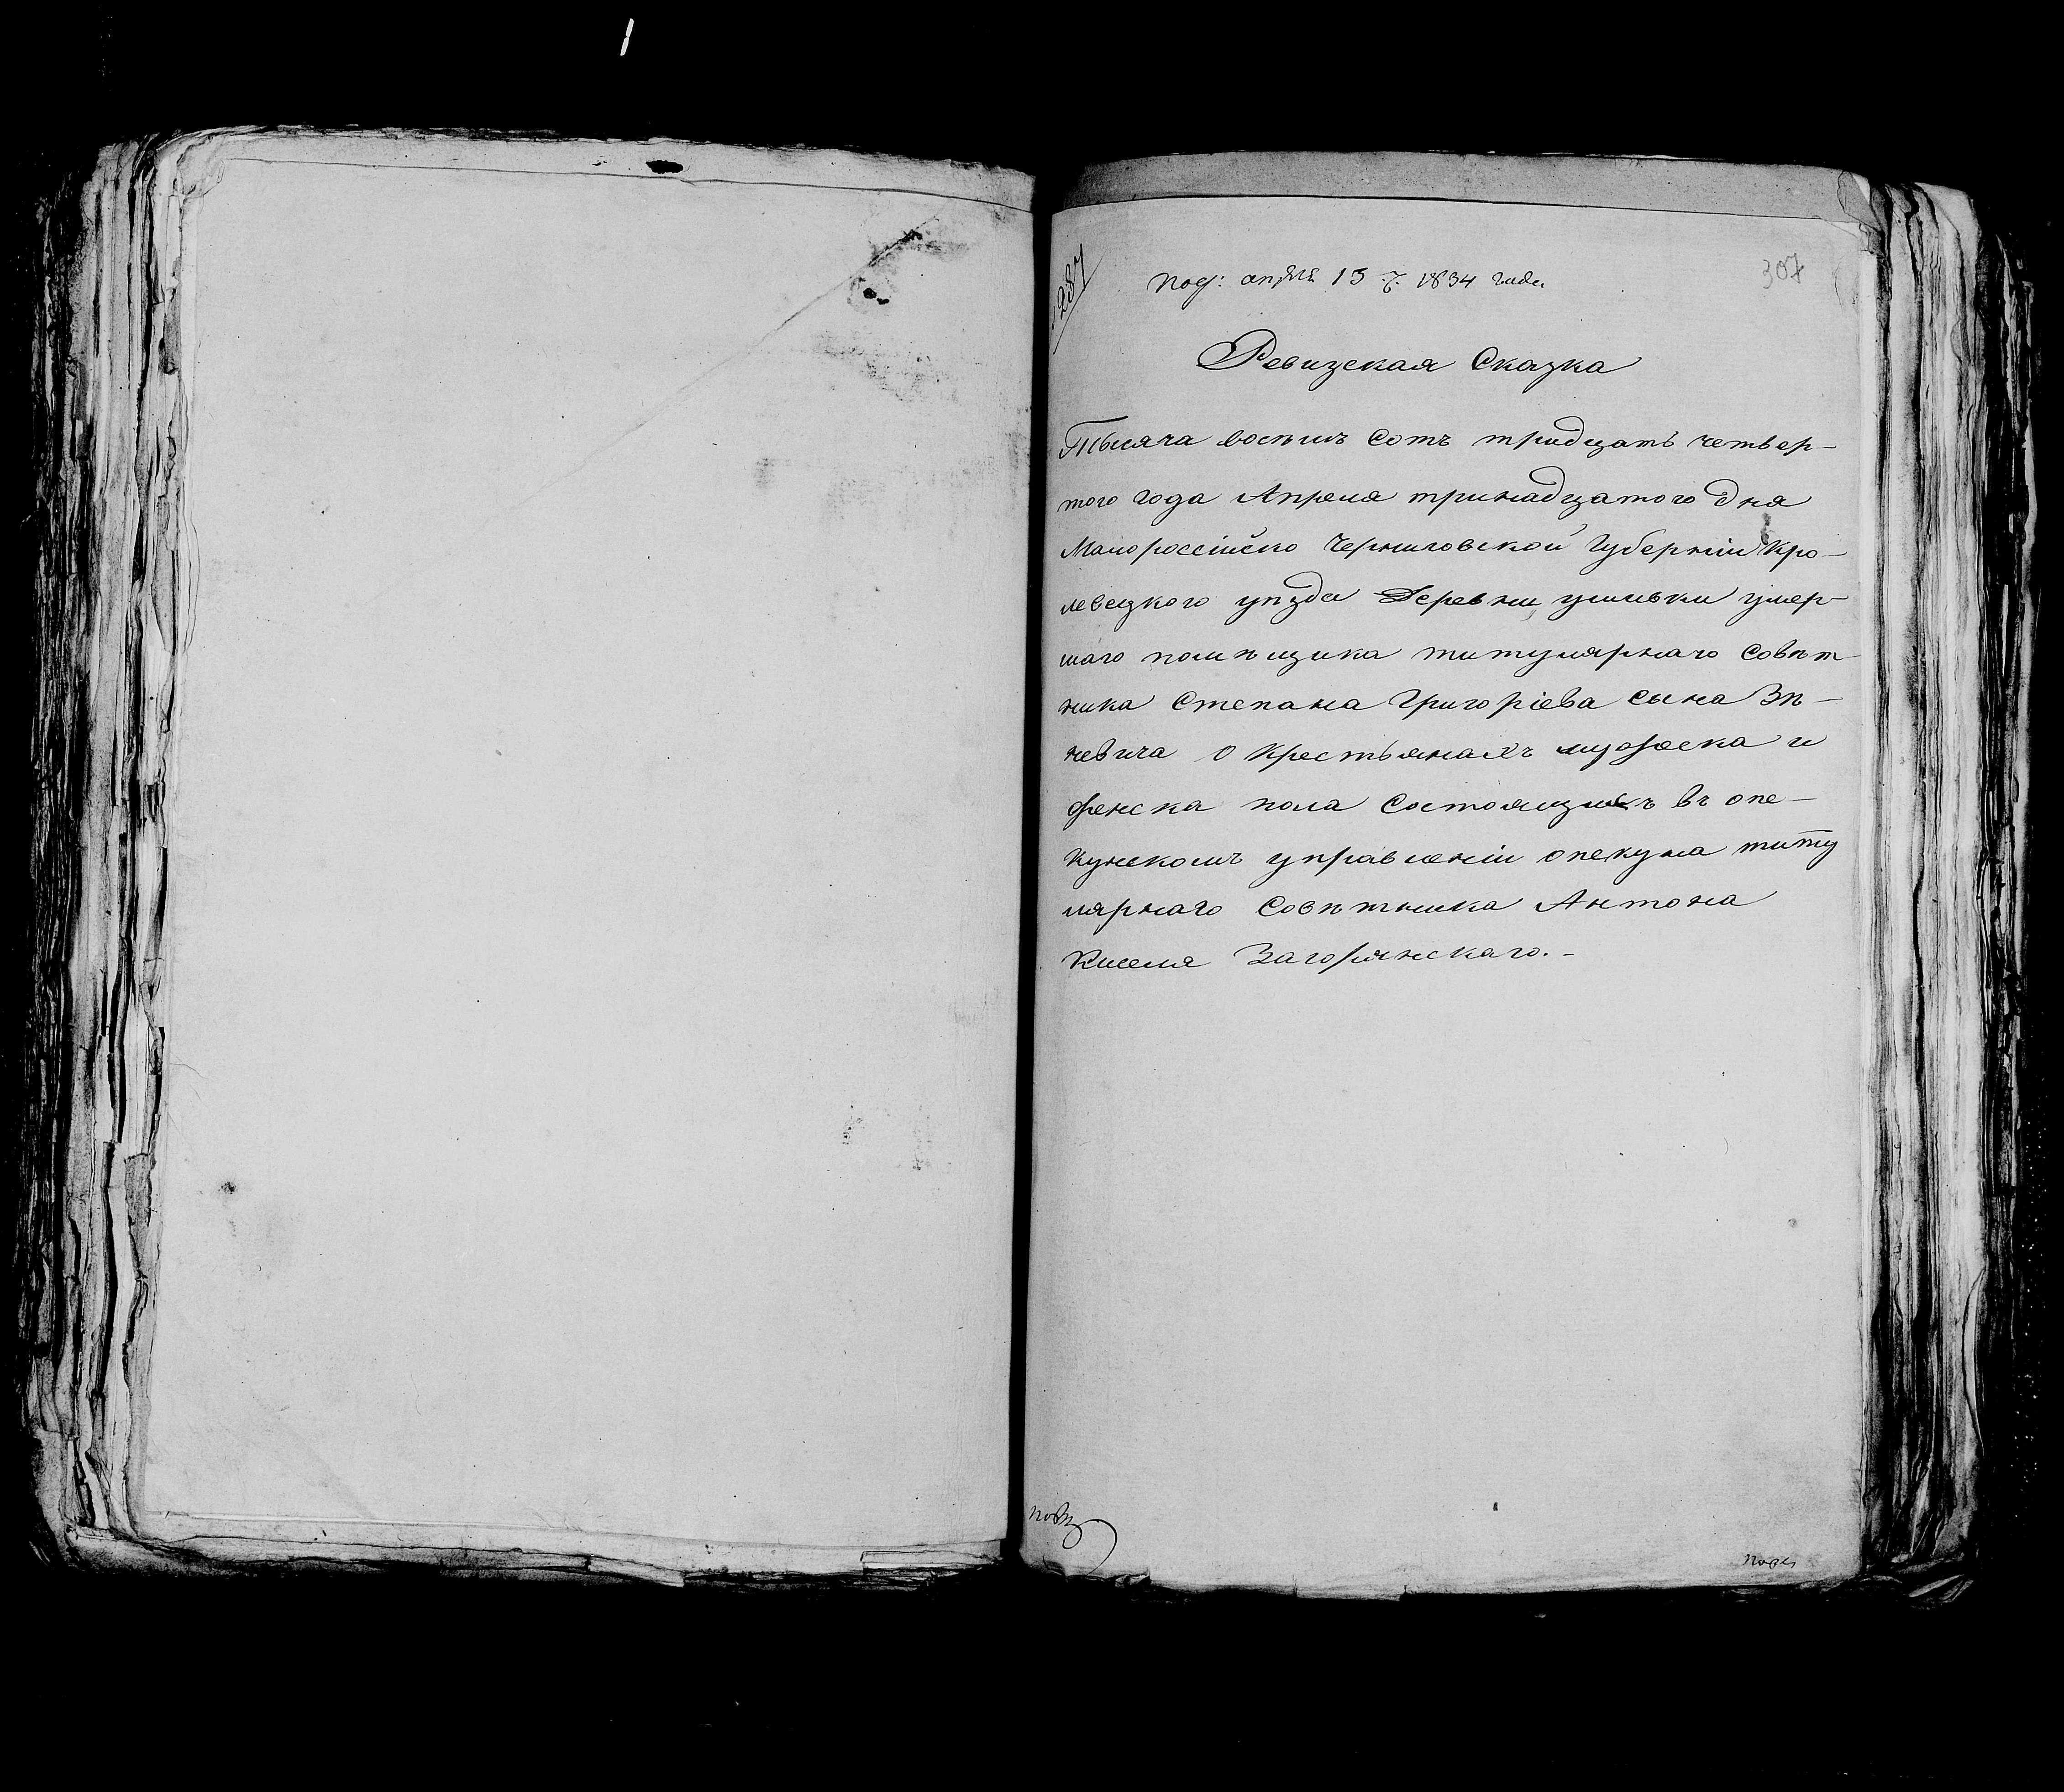 287
307
под: апреля 13 ч. 1834 года
Ревизская Сказка
Тысяча восемъ сотъ тридцать четвер-
того года Апреля тринадцатого дня
Малороссійско Черниговской Губерніи Кро-
левецкого уѣзда Деревни умер-
шаго помѣщика титулярнаго Совѣт
ника Степана Григоріева сына Зѣ-
невича о крестьянахъ мужеска и
женска пола состоящихъ въ опе-
кунскомъ управленіи опекуна титу
лярнаго Совѣтника Антона
Киселя Загорянскаго.-